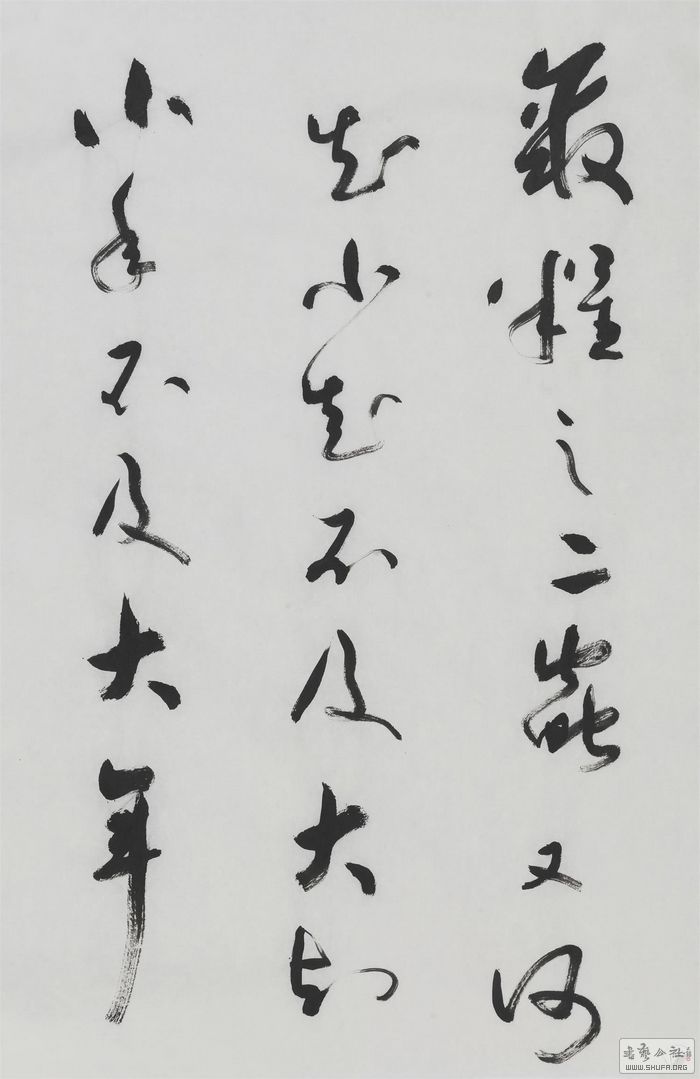 聚糧之二蟲又何
知小知不及大知
小年不及大年
書藝公社
WWW.SHUFA.ORG